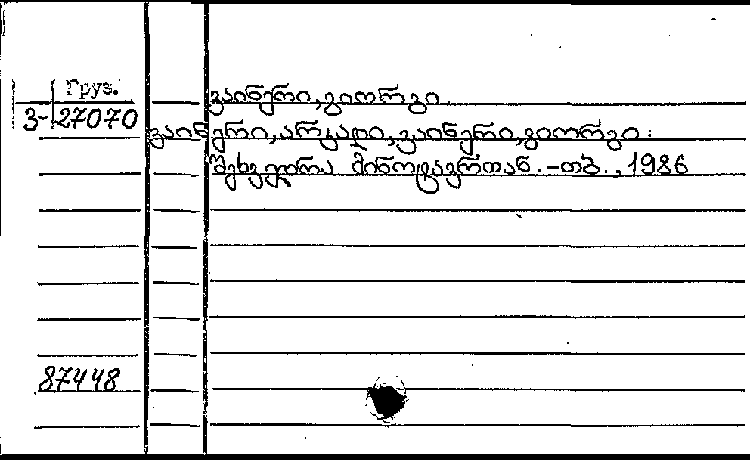 Груз.
ვაინერი, გიორგი.
3-27070
ვაინერი, არკადი, ვაინერი, გიორგი:
შეხვედრა მინოტავრთან. -თბ., 1986
87448